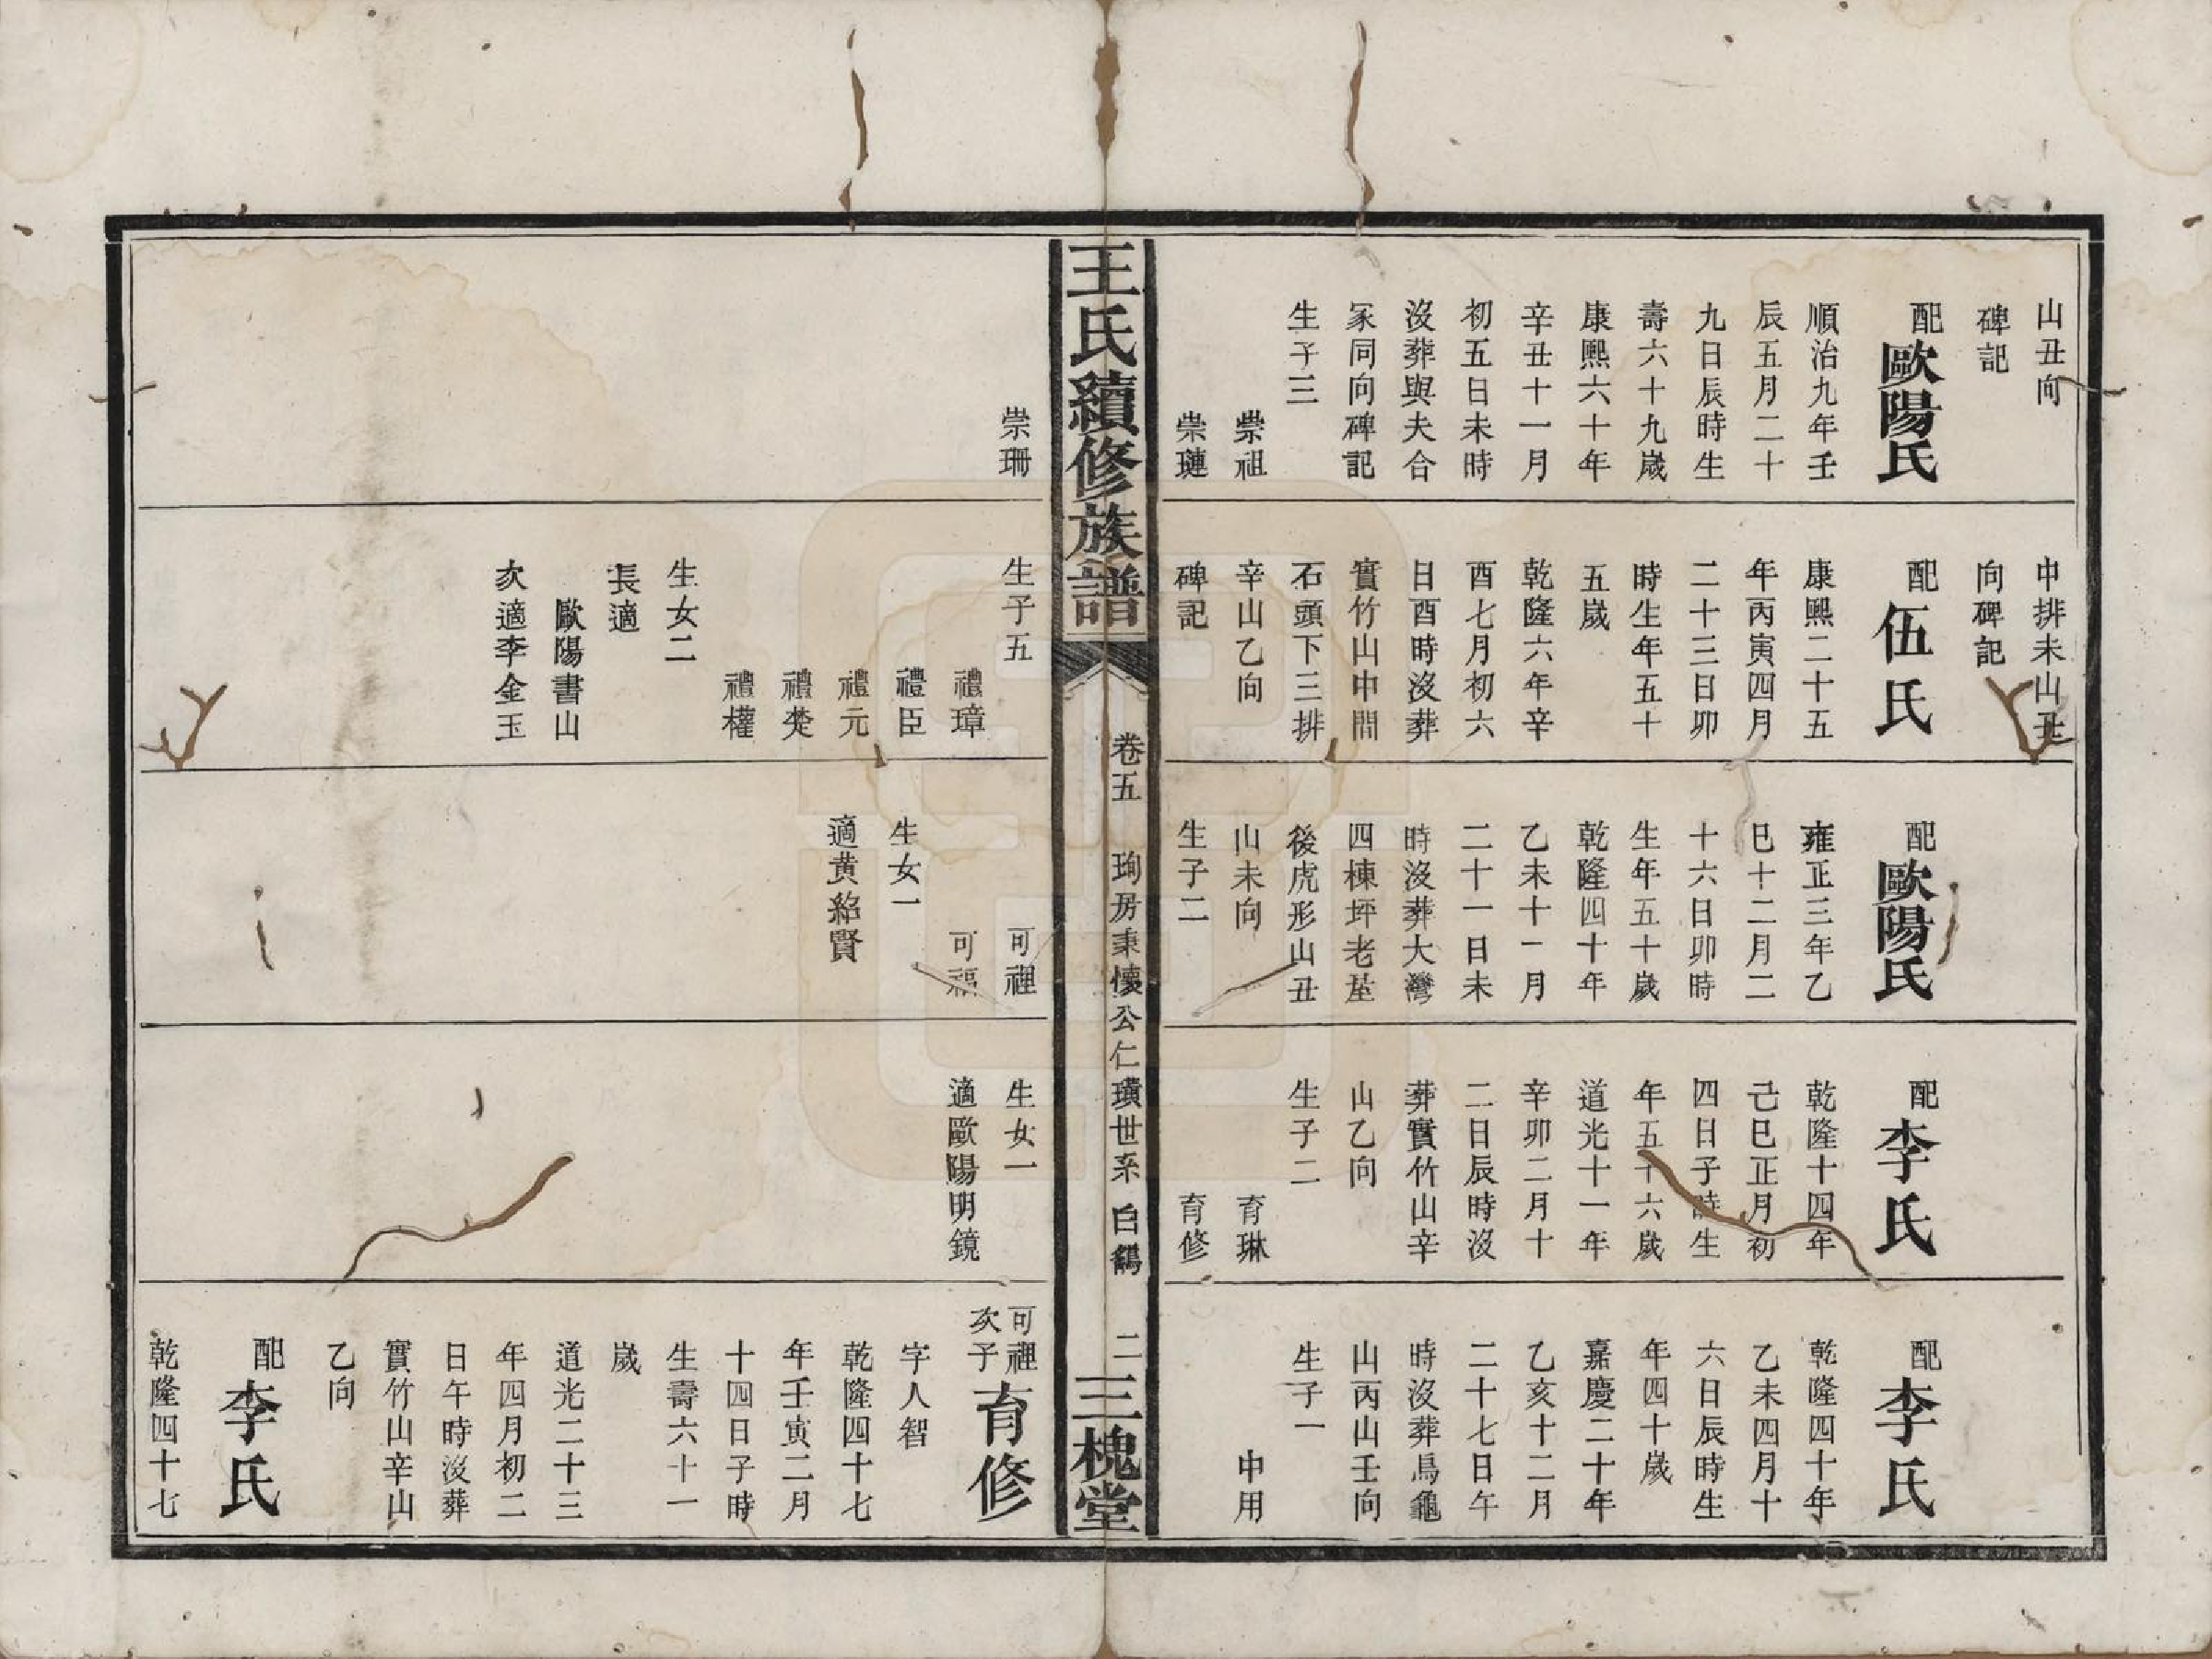 山丑向
碑記
配歐陽氏
順治九年壬
辰五月二十
九日辰時生
壽六十九歲
康熙六十年
辛丑十一月
初五日未時
沒葬與夫合
冢同向碑記
生子三
崇祖
崇璉
中排未山丑
向碑記
配伍氏
康熙二十五
年丙寅四月
二十三日卯
時生年五十
五歲
乾隆六年辛
酉七月初六
日酉時沒葬
實竹山中間
石頭下三排
辛山乙向
碑記
配歐陽氏
雍正三年乙
巳十二月二
十六日卯時
生年五十歲
乾隆四十年
乙未十一月
二十一日未
時沒葬大灣
四棟坪老塋
後虎形山丑
山未向
生子二
配李氏
乾隆十四年
己巳正月初
四日子時生
年五十六歲
道光十一年
辛卯二月十
二日辰時沒
葬實竹山辛
山乙向
生子二
育琳
育修
配李氏
乾隆四十年
乙未四月十
六日辰時生
年四十歲
嘉慶二十年
乙亥十二月
二十七日午
時沒葬烏龜
山丙山壬向
生子一
中用
王氏續修族譜
卷五
珣房秉懷公仁璜世系
白鶴
二
三槐堂
崇珊
生子五
禮璋
禮臣
禮元
禮焚
禮權
生女二
長適
歐陽書山
次適李金玉
可禋
可福
生女一
適黃紹賢
生女一
適歐陽明鏡
可禋
次子
育修
字人智
乾隆四十七
年壬寅二月
十四日子時
生壽六十一
歲
道光二十三
年四月初二
日午時沒葬
實竹山辛山
乙向
配李氏
乾隆四十七